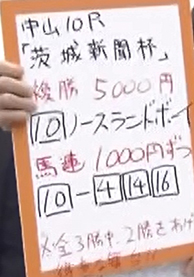 中山10R
「茨城新聞杯」
複勝 5000円
10 ノースランドボーイ
馬連 1000円ずつ
10-4 14 16
※全3勝中、2勝をあげ